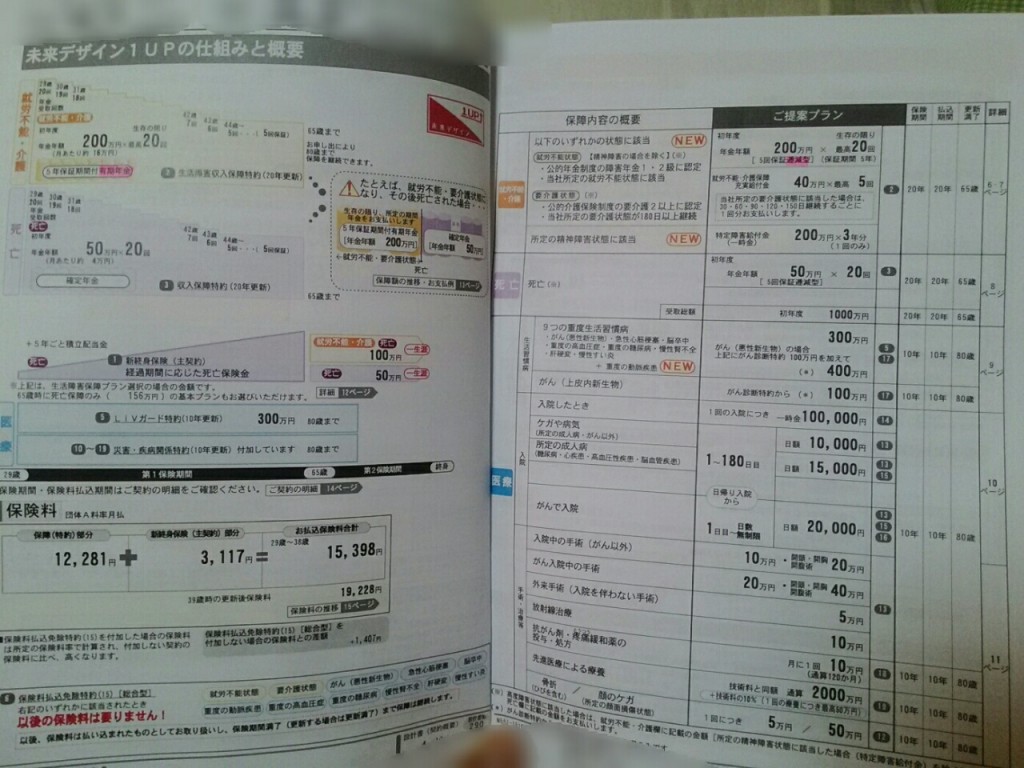 未来デザイン1UPの仕組みと概要
就労不能・介護
29歳 30歳 31歳
20回 19回 18回
年金
受取回数
就労不能・介護
初年度 生存の限り
年金年額 200万円×最高20回
(月あたり約 16万円)
5年保証期間付有期年金
2 生活障害収入保障特約(20年更新)
42歳 43歳 44歳~
7回 6回 5回・・・(5回保証)
65歳まで
お申し出により
80歳まで
保障を継続できます。
1UP!
未来デザイン
死亡
29歳 30歳 31歳
20回 19回 18回
年金
受取回数
死亡
初年度
年金年額 50万円×20回
(月あたり約 4万円)
確定年金
3 収入保障特約(20年更新)
42歳 43歳 44歳~
7回 6回 5回・・・(5回保証)
65歳まで
たとえば、就労不能・要介護状態に
なり、その後死亡された場合・・・
生存の限り、所定の期間
年金をお支払いします
5年保証期間付有期年金
[年金年額] 200万円
確定年金
[年金年額] 50万円
←就労不能・要介護状態
死亡
保障額の推移・お支払例 13ページ
+5年ごと積立配当金
死亡
1 新終身保険(主契約)
経過期間に応じた死亡保険金
就労不能・介護 死亡
100万円 一生涯
死亡 50万円 一生涯
※上記は、生活障害保障プラン選択の場合の金額です。
65歳時に死亡保障のみ( 156万円)の基本プランもお選びいただけます。
詳細 12ページ
医療
5 LIVガード特約(10年更新) 300万円 80歳まで
10~19 災害・疾病関係特約(10年更新) 付加しています 80歳まで
29歳 第1保険期間 65歳 第2保険期間 終身
保険期間・保険料払込期間はご契約の明細をご確認ください。 ご契約の明細 14ページ
保険料 団体A料率月払
保障(特約)部分 新終身保険(主契約)部分 お払込保険料合計
29歳~38歳
12,281円 + 3,117円 = 15,398円
39歳時の更新後保険料 19,228円
保険料の推移 15ページ
■保険料払込免除特約(15)を付加した場合の保険料
は所定の保険料率で計算され、付加しない契約の
保険料に比べ、高くなります。
保険料払込免除特約(15)[総合型]を
付加しない場合の保険料との差額
+1,407円
6 保険料払込免除特約(15)[総合型]
右記のいずれかに該当されたとき
以後の保険料は要りません!
就労不能状態 要介護状態 がん(悪性新生物) 急性心筋梗塞 脳卒中
重度の動脈疾患 重度の高血圧症 重度の糖尿病 慢性腎不全 肝硬変 慢性すい炎
以後、保険料は払い込まれたものとしてお取り扱いし、保険期間満了(更新する場合は更新満了)まで保障は継続します。
設計書(契約概要)
保障内容の概要 ご提案プラン 保険期間 払込期間 更新満了 詳細
就労不能・介護
以下のいずれかの状態に該当 NEW
就労不能状態 【精神障害の場合を除く】(※)
・公的年金制度の障害年金1・2級に認定
・当社所定の就労不能状態に該当
要介護状態 (※)
・公的介護保険制度の要介護2以上に認定
・当社所定の要介護状態が180日以上継続
所定の精神障害状態に該当 NEW
初年度 生存の限り
年金年額 200万円 × 最高20回
[5回保証逓減型] (保証期間 5年)
就労不能・介護保障
充実給付金 40万円×最高 5回
当社所定の要介護状態に該当した場合は、
30・60・90・120・150日継続するごとに
1回分お支払いします。
特定障害給付金
(一時金) 200万円×3年分
(1回のみ)
2 20年 20年 65歳 6-7ページ
死亡
死亡(※)
初年度
年金年額 50万円 × 20回
[5回保証逓減型]
3 20年 20年 65歳 8ページ
受取総額 初年度 1000万円 20年 20年 65歳
医療
生活習慣病
9つの重度生活習慣病
・がん(悪性新生物)・急性心筋梗塞・脳卒中
・重度の高血圧症・重度の糖尿病・慢性腎不全
・肝硬変・慢性すい炎
+ 重度の動脈疾患 NEW
300万円
がん(悪性新生物)の場合
上記にがん診断特約 100万円を加えて
(*) 400万円
5 17 10年 10年 80歳 9ページ
がん(上皮内新生物) がん診断特約から(*) 100万円 17 10年 10年 80歳
入院
入院したとき 1回の入院につき 一時金 100,000円 14
ケガや病気
(所定の成人病・がん以外)
1~180日目
日額 10,000円 13
所定の成人病
(糖尿病・心疾患・高血圧性疾患・脳血管疾患)
日額 15,000円 13 15
がんで入院
日帰り入院から
1日目~日数無制限 日額 20,000円
13 15 16
10年 10年 80歳 10ページ
手術・治療等
入院中の手術(がん以外) 10万円 ・開頭・開胸・開腹術 20万円
がん入院中の手術 20万円 ・開頭・開胸・開腹術 40万円
外来手術(入院を伴わない手術) 5万円
放射線治療 10万円
13
抗がん剤・疼痛緩和薬の
投与・処方
月に1回 10万円
(通算120か月)
18 10年 10年 80歳 11ページ
先進医療による療養
技術料と同額 通算 2000万円
+技術料の10%(1回の療養につき最高50万円)
19 10年 10年 80歳
骨折
(ひびを含む) / 顔のケガ
(所定の顔面損傷状態)
1回につき 5万円 / 50万円
12 10年 10年 80歳